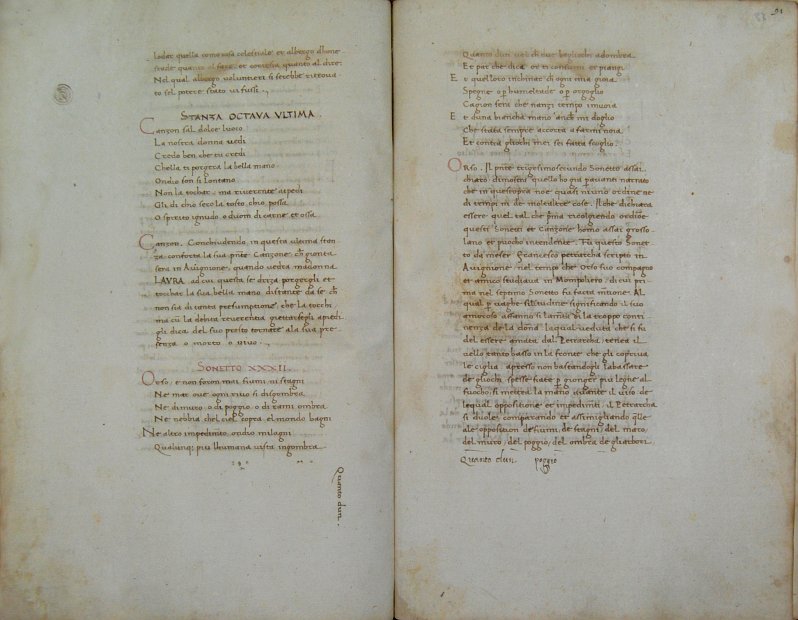 lodar quella como cosa celestiale et albergo dhone
stade quanto al fare, et cortesia quanto al dire:
Nel qual albergo voluntieri si serebbe ritrova
to sel potere stato vi fussi.
STANZA OCTAVA VLTIMA.
Canzon sal dolce luoco
La nostra donna vedi
Credo ben che tu credi
Chella ti porgera la bella mano
Ondio son si lontano
Non la tochar, ma riverente apiedi
Gli di chio seco la tosto chio possa
O spirto ignudo o duom di carne et ossa
Canzon. Conchiudendo in questa ultima stan
za conforta la sua pnte Canzone, ch gionta
sera in Avignione, quando vedra madonna
LAVRA, ad cui questa se driza, porgergli et
tochar la sua bella mano, distante da se ch
non sia di tanta presumptione, che la tocchi
ma cū la debita reverentia giettarsegli apiedi
gli dica del suo presto tornare ala sua pre-
senza o morto o vivo.
SONETTO XXXII.
Orso, e non foron mai fiumi, ni stagni
Ne mar, oue ogni rivo si disgombra
Ne di muro, o di poggio, o di rami ombra
Ne nebbia chel ciel copra, el mondo bagni
Ne altro impedimto, ondio milagni
Qualunq; piu lhumana vista ingombra
Quanto dun
91
Quanto dun vel ch due begliochi adombra
Et par che dica or ti consumi et piangi
Et quel loro inchinar ch ogni mia gioia
Spegne o p humeltade o p orgoglio
Cagion sera che nanzi tempo imuoia
Et duna biancha mano anche mi doglio
Che stata sempre accorta a farmi noia
Et contra gliochi mei sei fatta scoglio.
Orso. Il pnte trigesimosecundo Sonetto assai
chiaro dimostra quello ho gia pavanti narrato
che in questopra nōe quasi niuno ordine ne
di tempi ni de molaltre cose. Ilche dichiara
essere quel tal che pma ricolgiendo ordioe
questi Sonetti et Canzone homo assai grosso
lano et puocho intendente. Fu questo Sonet
to da meser Francesco petrarcha scripto in
Avignione nel tempo che Orso suo compagno
et amico studiava in Monpoliero, di cui pri
ma nel septimo Sonetto fu facta mtione. Al
qual p vaghe silitudine significando il suo
amoroso afanno si lamta di la troppo conti
nenza de la dōna laqual veduta che si fu
del essere amata dal Petrarcha, tenea il
vello tanto basso in la fronte che gli copriva
le ciglia. apresso non bastandogli labassare
de gliochi, spesse fiate p giongere piu legne al
fuocho, si mettea la mano avante il viso: de
lequal oppositione et impedimti il Petrarcha
si duole comparando et assimigliando qlle
ale opposition de fiumi, de stagni, del mare,
del muro, del poggio, del ombra de gliarbori,
Quanto dun poggio